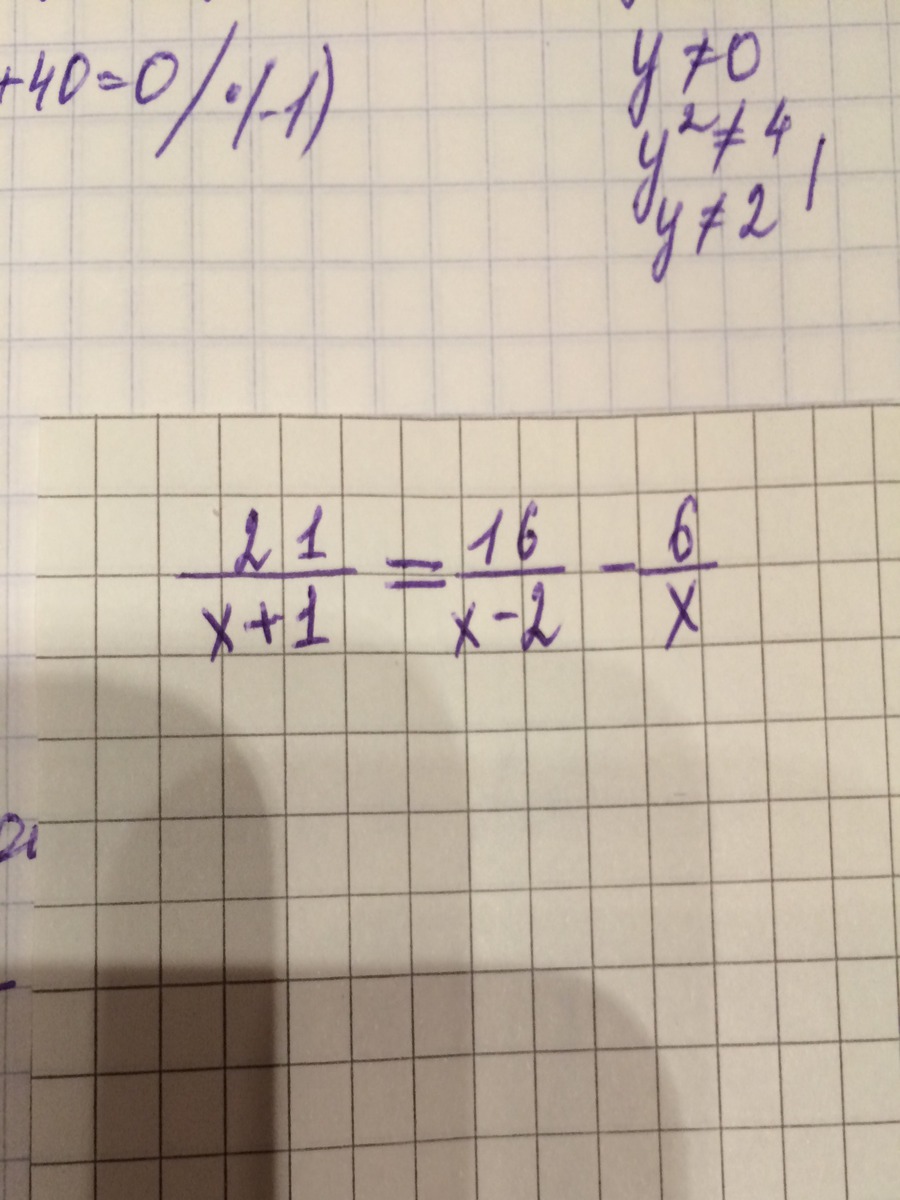 +40=0 / ·(-1)
y ≠ 0
y² ≠ 4
y ≠ 2
21/(x+1) = 16/(x-2) - 6/x